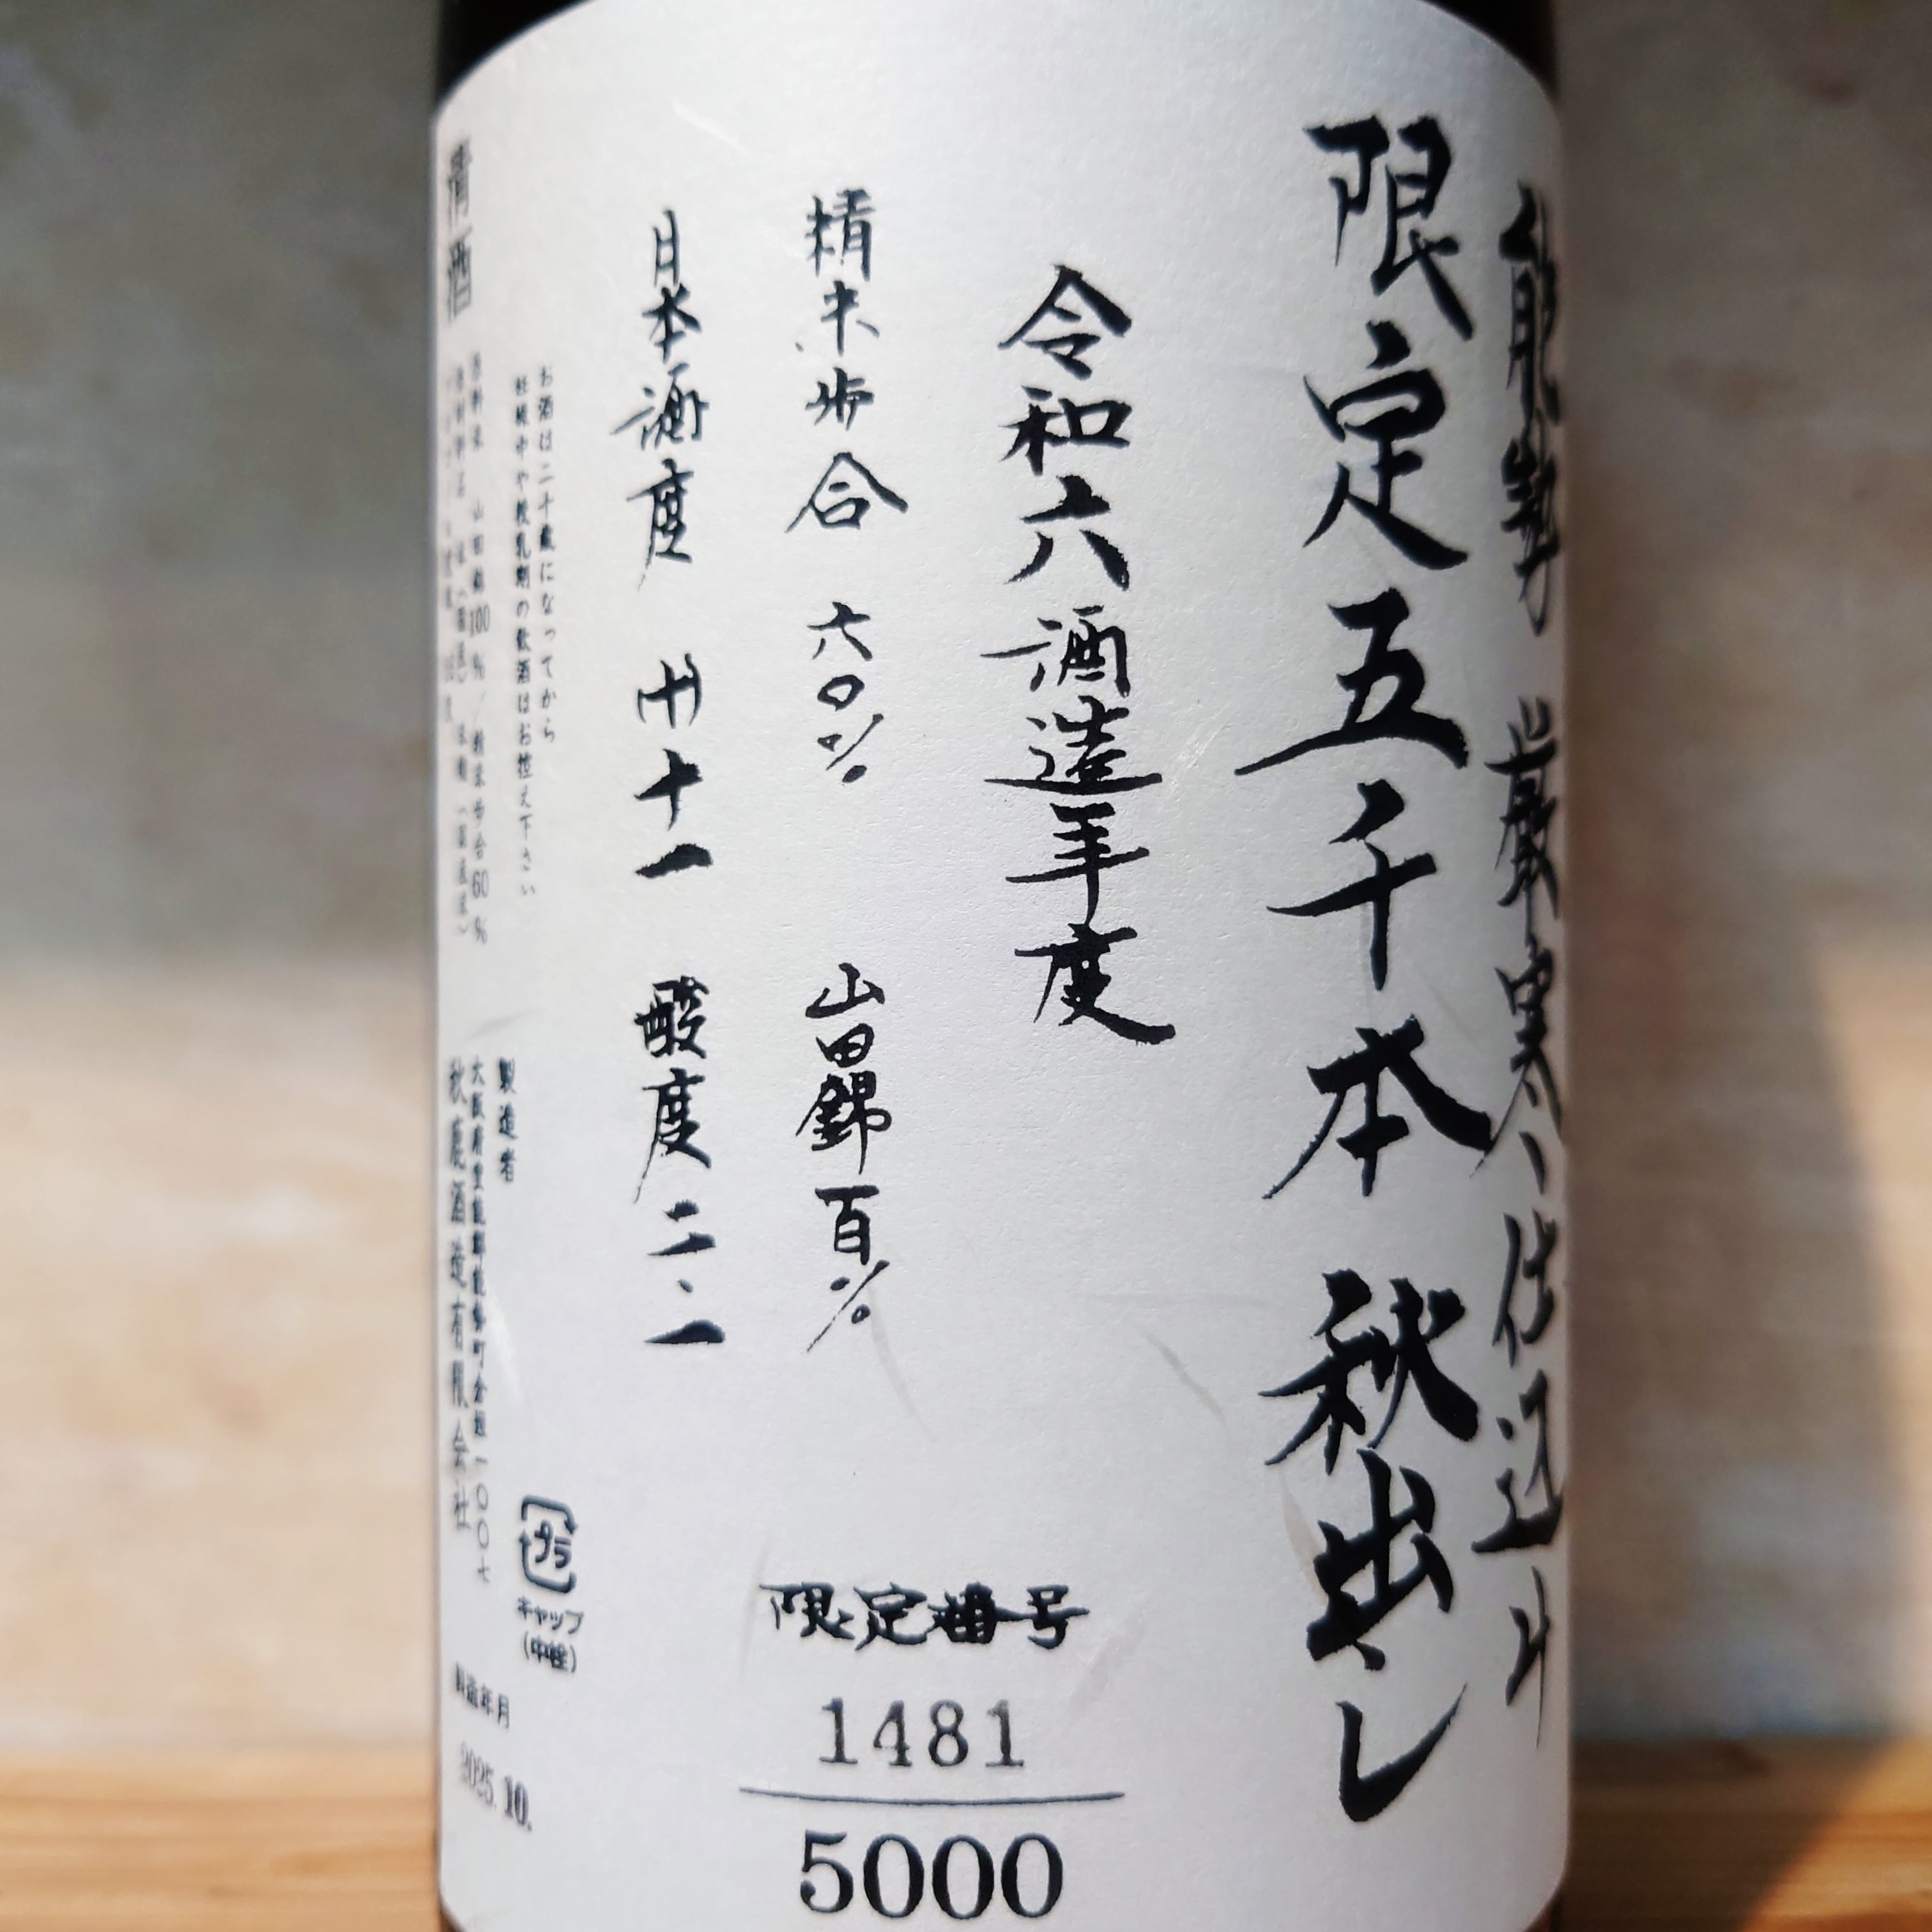 能勢 厳寒仕込み
限定五千本 秋出し
令和六酒造年度
精米歩合 六〇% 山田錦百%
日本酒度 (+)十一 酸度二、一
限定番号
1481
5000
お酒は二十歳になってから
妊娠中や授乳期の飲酒はお控え下さい
原料米 山田錦100%/精米歩合60%
清酒
製造者
大阪府豊能郡能勢町倉垣一〇〇七
秋鹿酒造有限会社
プラ
キャップ
(中栓)
製造年月
2025.10.